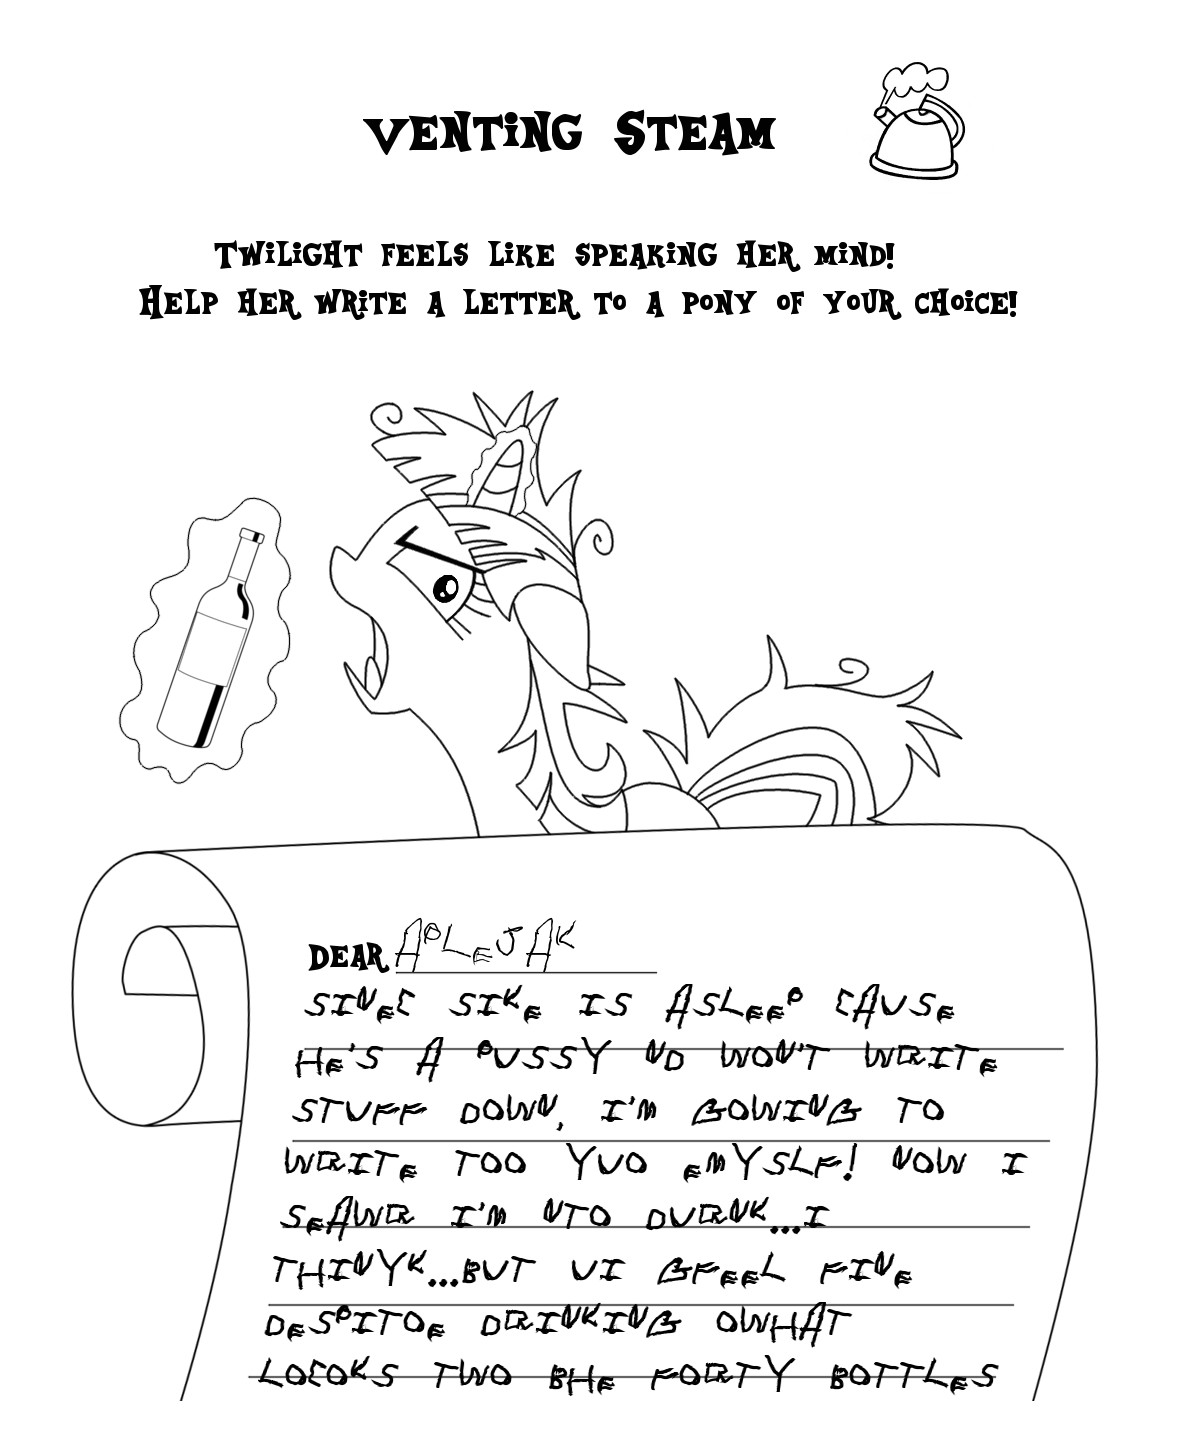 VENTING STEAM
TWILIGHT FEELS LIKE SPEAKING HER MIND!
HELP HER WRITE A LETTER TO A PONY OF YOUR CHOICE!
DEAR APLEJAK
SINEC SIKE IS ASLEEP CAUSE
HE'S A PUSSY ND WON'T WRITE
STUFF DOWN, I'M GOWING TO
WRITE TOO YUO EMYSLF! NOW I
SEAWR I'M NTO DURNK...I
THINYK...BUT UI GFEEL FINE
DESPITOE DRINKING OWHAT
LOCOKS TWO BHE FORTY BOTTLES